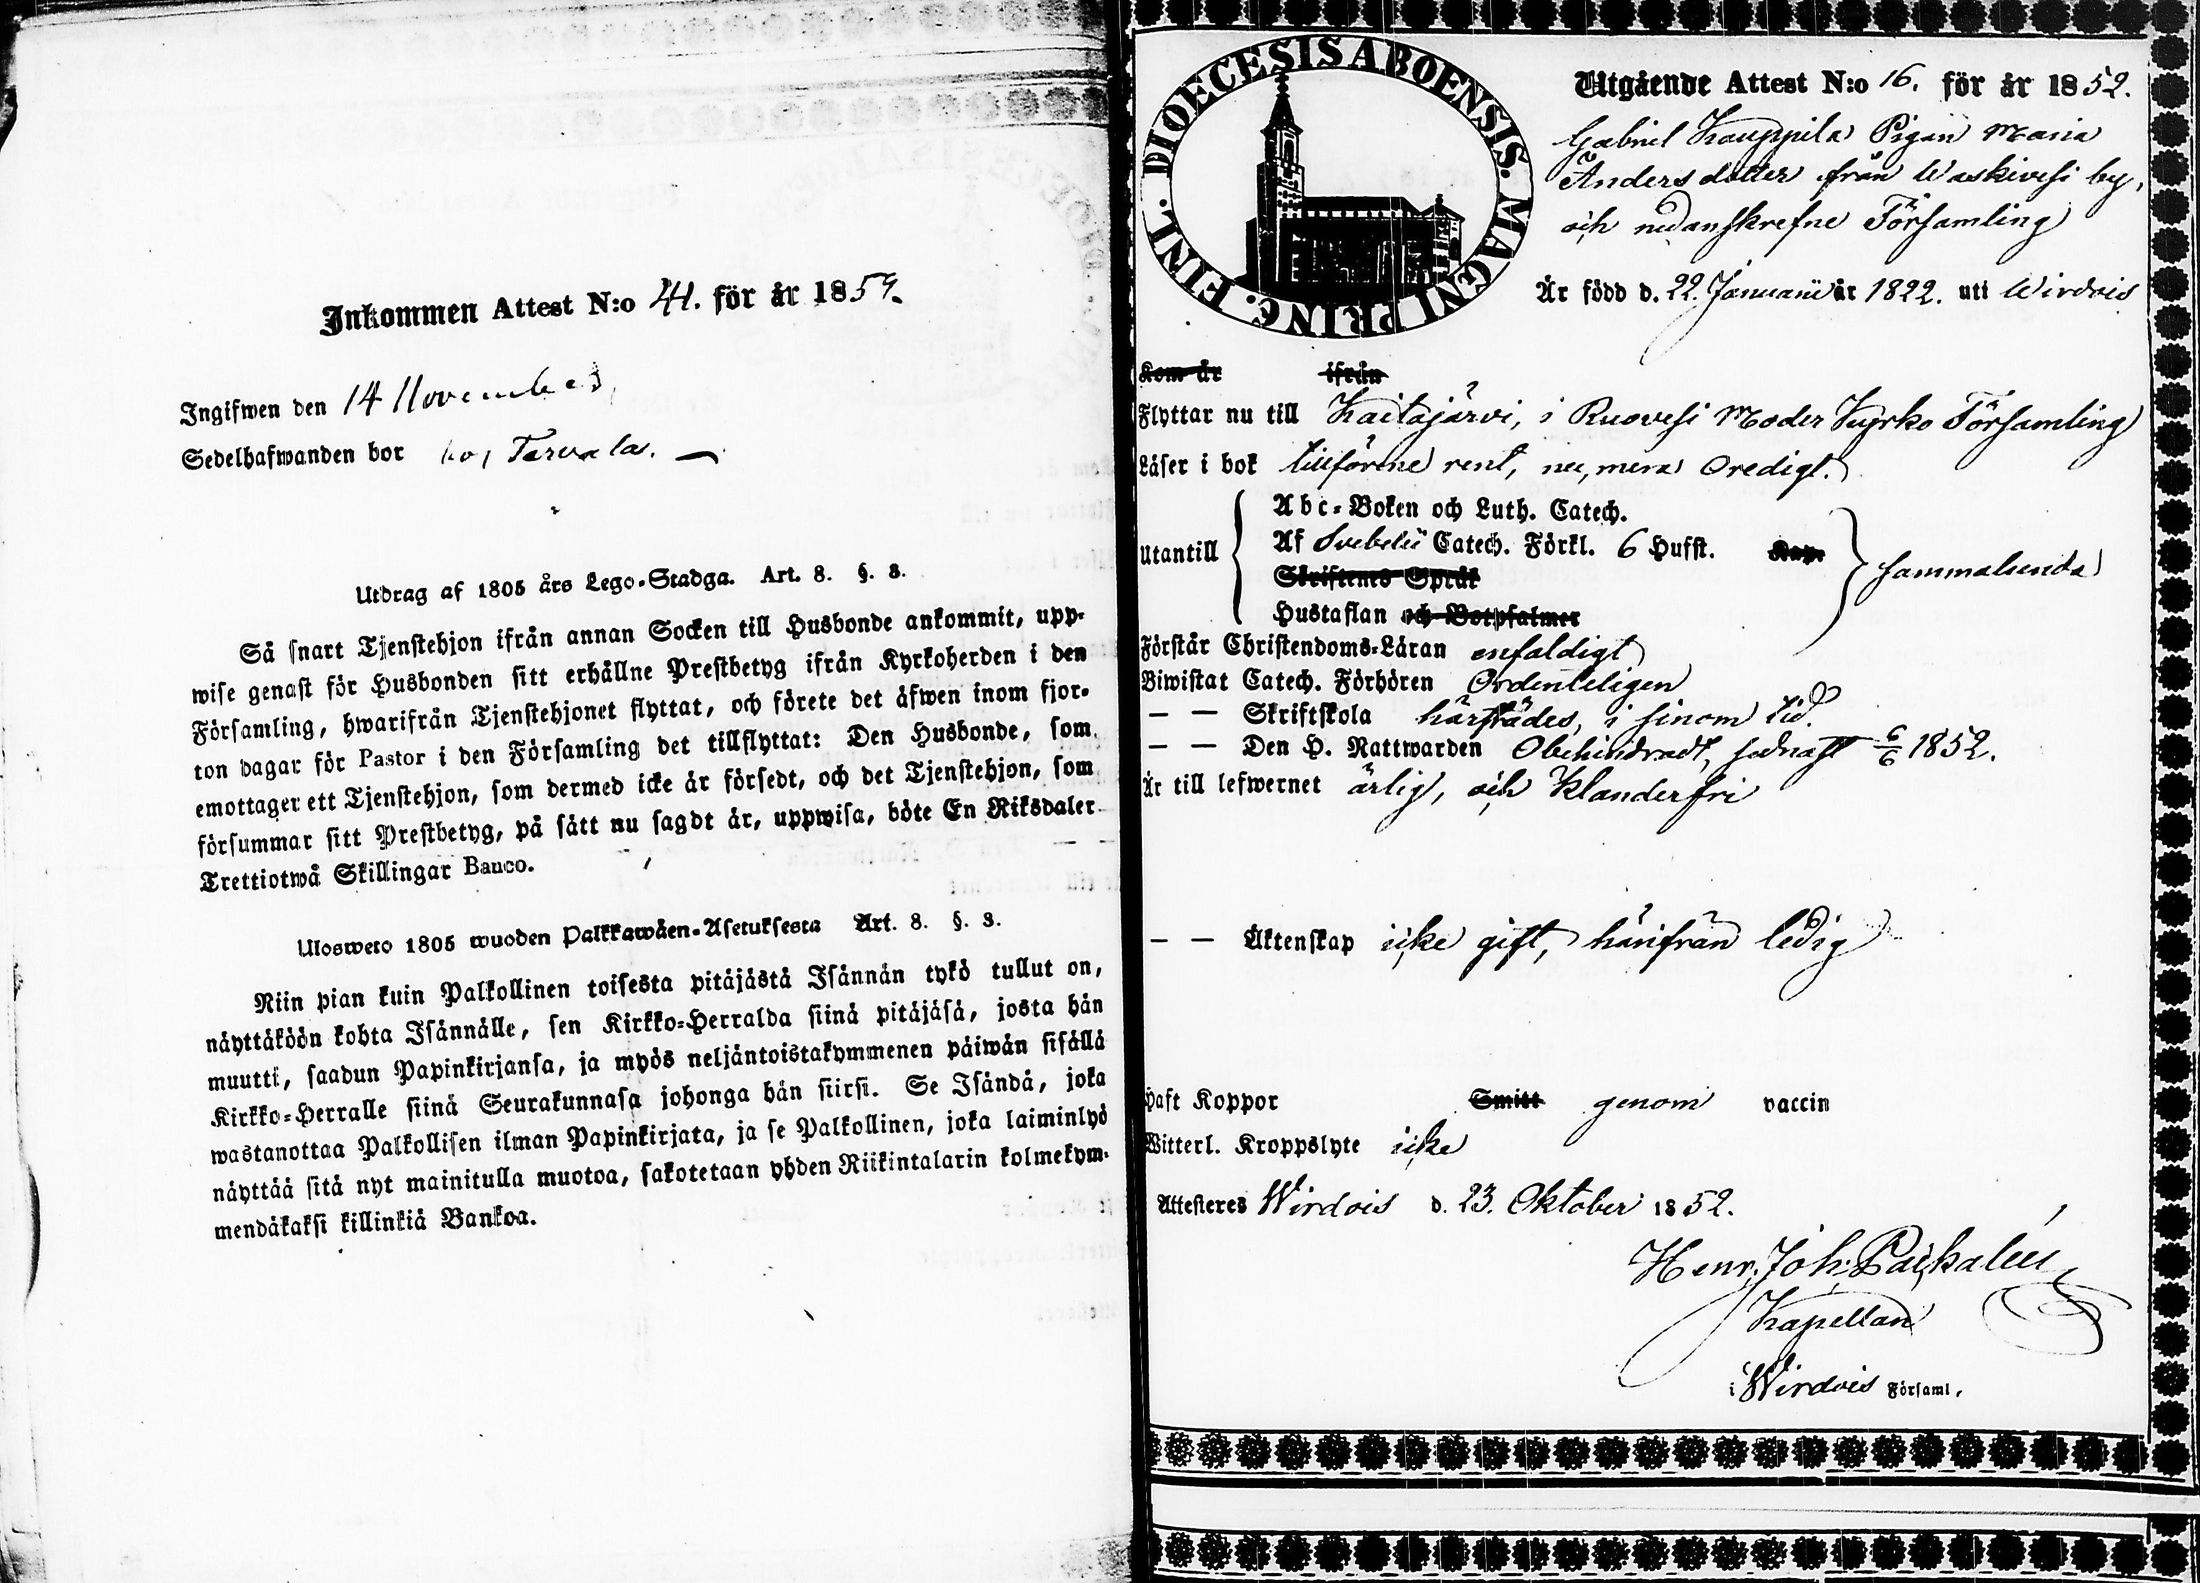 Inkommen Attest N:o 41. för år 185
Ingifwen den 14 November
Sedelhafwanden bor hos Tarvala.
Utdrag af 1805 års Lego-Stadga. Art. 8. §. 3.
Så snart Tjenstehjon ifrån annan Socken till Husbonde ankommit, upp-
wise genast för Husbonden sitt erhållne Prestbetyg ifrån Kyrkoherden i den
Församling, hwarifrån Tjenstehjonet flyttat, och förete det äfwen inom fjor-
ton dagar för Pastor i den Församling det tillflyttat: Den Husbonde, som
emottager ett Tjenstehjon, som dermed icke är försedt, och det Tjenstehjon, som
försummar sitt Prestbetyg, på sätt nu sagdt är, uppwisa, böte En Riksdaler
Trettiotwå Skillingar Banco.
Ulosweto 1805 wuoden Palkkawäen-Asetuksesta Art. 8. §. 3.
Niin pian kuin Palkollinen toisesta pitäjästä Isännän tykö tullut on,
näyttäköön kohta Isännälle, sen Kirkko-Herralda siinä pitäjäsä, josta hän
muutti, saadun Papinkirjansa, ja myös neljäntoistakymmenen päiwän sisällä
Kirkko-Herralle siinä Seurakunnasa johonga hän siirsi. Se Isändä, joka
wastanottaa Palkollisen ilman Papinkirjata, ja se Palkollinen, joka laiminlyö
näyttää sitä nyt mainitulla muotoa, sakotetaan yhden Riikintalarin kolmekym-
mendäkaksi killinkiä Bankoa.
FINL. DIOECESIS ABOENSIS. MAGNI PRINC.
Utgående Attest N:o 16. för år 1852.
Gabriel Kauppila Pigan Maria
Andersdotter från Waskivesi by,
och nedanskrefne Församling
Är född d. 22. Januarii år 1822. uti Wirdois
Kom år ifrån
Flyttar nu till Kaitajärvi, i Ruovesi Moder Kyrko Församling
Läser i bok tillförne rent, nu, mera oredigt.
Abc-Boken och Luth. Catech.
Utantill Af Svebelii Catech. Förkl. 6 Hufst. Kap. sammalunda
Skriftenes Språk
Hustaflan och Botpsalmer
Förstår Christendoms-Läran enfaldigt
Biwistat Catech. Förhören Ordenteligen
— — Skriftskola härstädes, i sinom tid.
— — Den H. Nattwarden Obehindradt, sednast 6/6 1852.
Är till lefwernet ärlig, och klanderfri
— — Äktenskap icke gift, härifrån ledig
Haft Koppor Smitt genom vaccin
Witterl. Kroppslyte icke
Attesteres Wirdois d. 23. Oktober 1852.
Henr. Joh.
Kapellan
i Wirdois Församl.